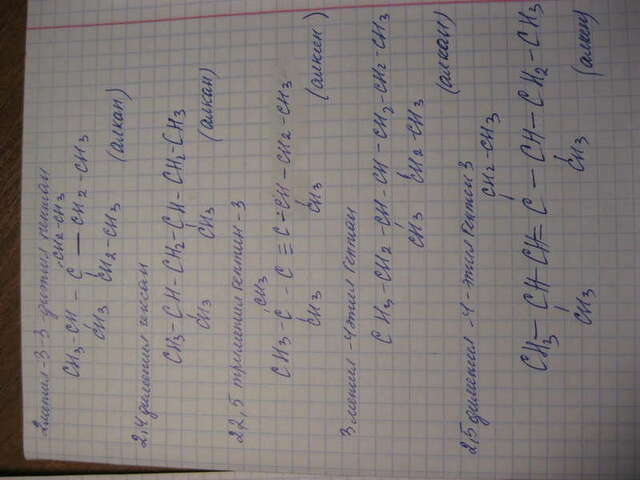 2 метил-3-3-диэтил пентан
CH2-CH3
CH3-CH - C — CH2-CH3
CH3 CH2-CH3 (алкан)
2,4 диметил гексан
CH3-CH-CH2-CH-CH2-CH3
CH3 CH3 (алкан)
2 2, 5 триметил гептин-3
CH3
CH3-C - C ≡ C-CH-CH2-CH3
CH3 CH3 (алкин)
3 метил-4этил гептан
CH3-CH2-CH-CH-CH2-CH2-CH3
CH3 CH2-CH3 (алкан)
2,5 диметил-4-этил гептен 3
CH2-CH3
CH3-CH-CH=C-CH-CH2-CH3
CH3 CH3 (алкен)